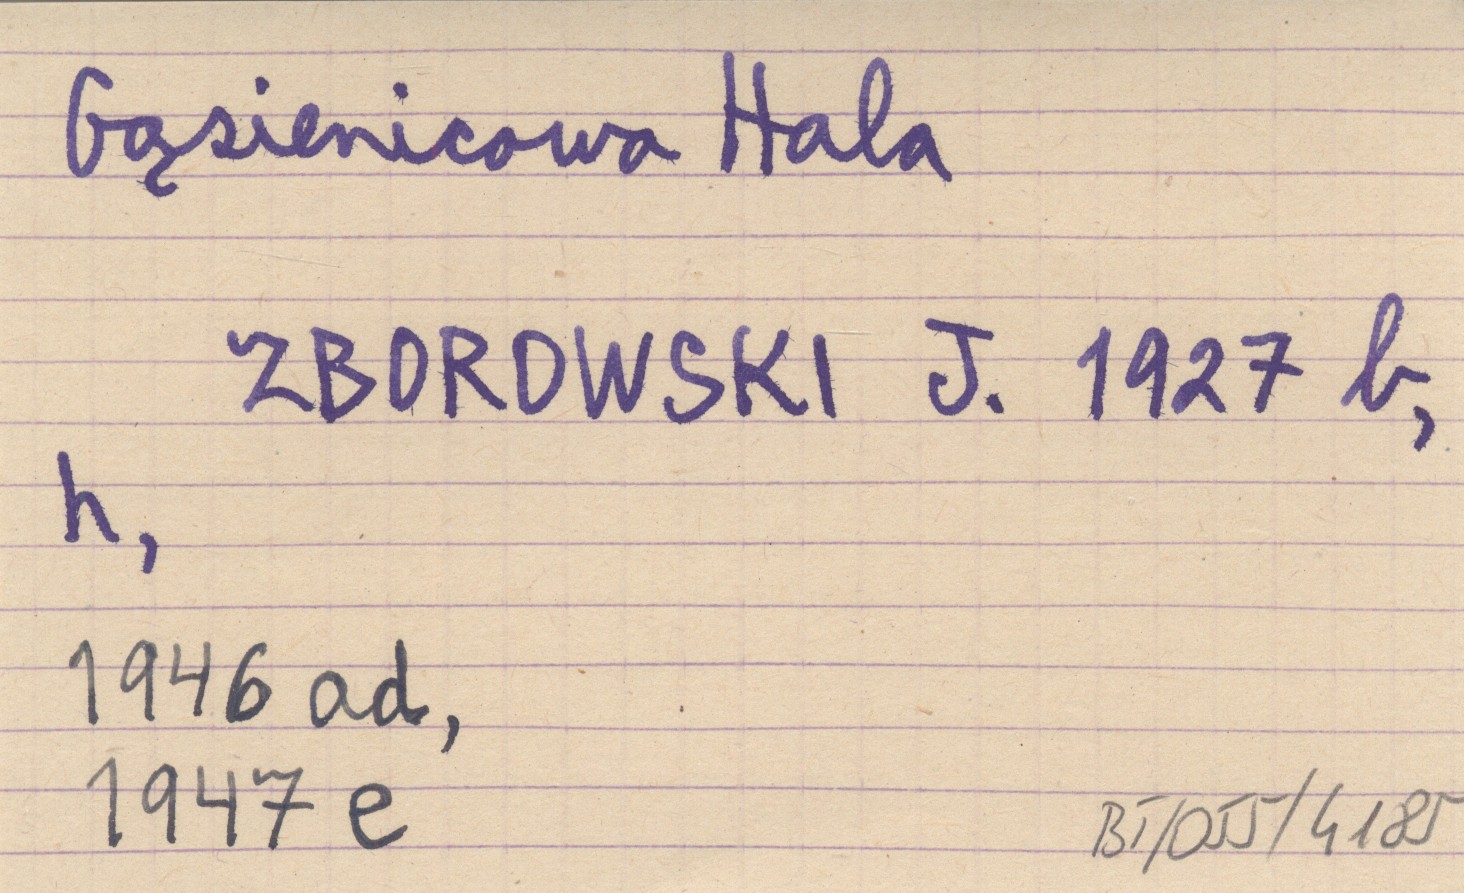 Gąsienicowa Hala
ZBOROWSKI J. 1927 b,
h,
1946 ad,
1947 e
BT/055/4185